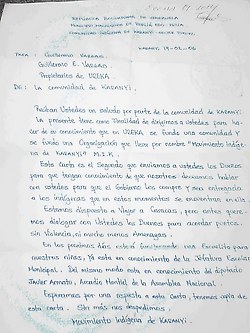 REPUBLICA BOLIVARIANA DE VENEZUELA
KARANYI 19-02-06
PARA: Guillermo VARGAS
Guillermo E. VARGAS
Propietarios de UZEKA
DE: La comunidad de KARANYI
Reciban Ustedes un saludo por parte de la comunidad de KARANYI
La presente tiene como finalidad de dirigirnos a ustedes para ha-
cer de su conocimiento que en UZEKA se fundo una comunidad y
se fundo una Organización que lleva por nombre "Movimiento Indíge-
na de KARANYI" M.I.K.
Esta Carta es la Segunda que enviamos a ustedes los Dueños
para que tengan conocimiento de que nosotros decidimos hablar
con ustedes para que el Gobierno les compre y sea entregado
a los indígenas que en estos momentos se encuentran en ella
Estamos dispuesto a Viajar a Caracas, pero antes quere-
mos dialogar con Ustedes los Dueños para acordar puntos
sin Violencia, ni mucho menos Amenazas.
En los proximos Años estará funcionando una Escuelita para
nuestros niños, Ya esta en conocimiento de la Jefatura Escolar
Municipal. Del mismo modo esta en conocimiento del diputado
Javier Armato, Arcadio Montiel de la Asamblea Nacional.
Esperamos por una respuesta a esta Carta, tenemos copia de
esta carta. Sin más nos despedimos.
Movimiento Indígena de KARANYI